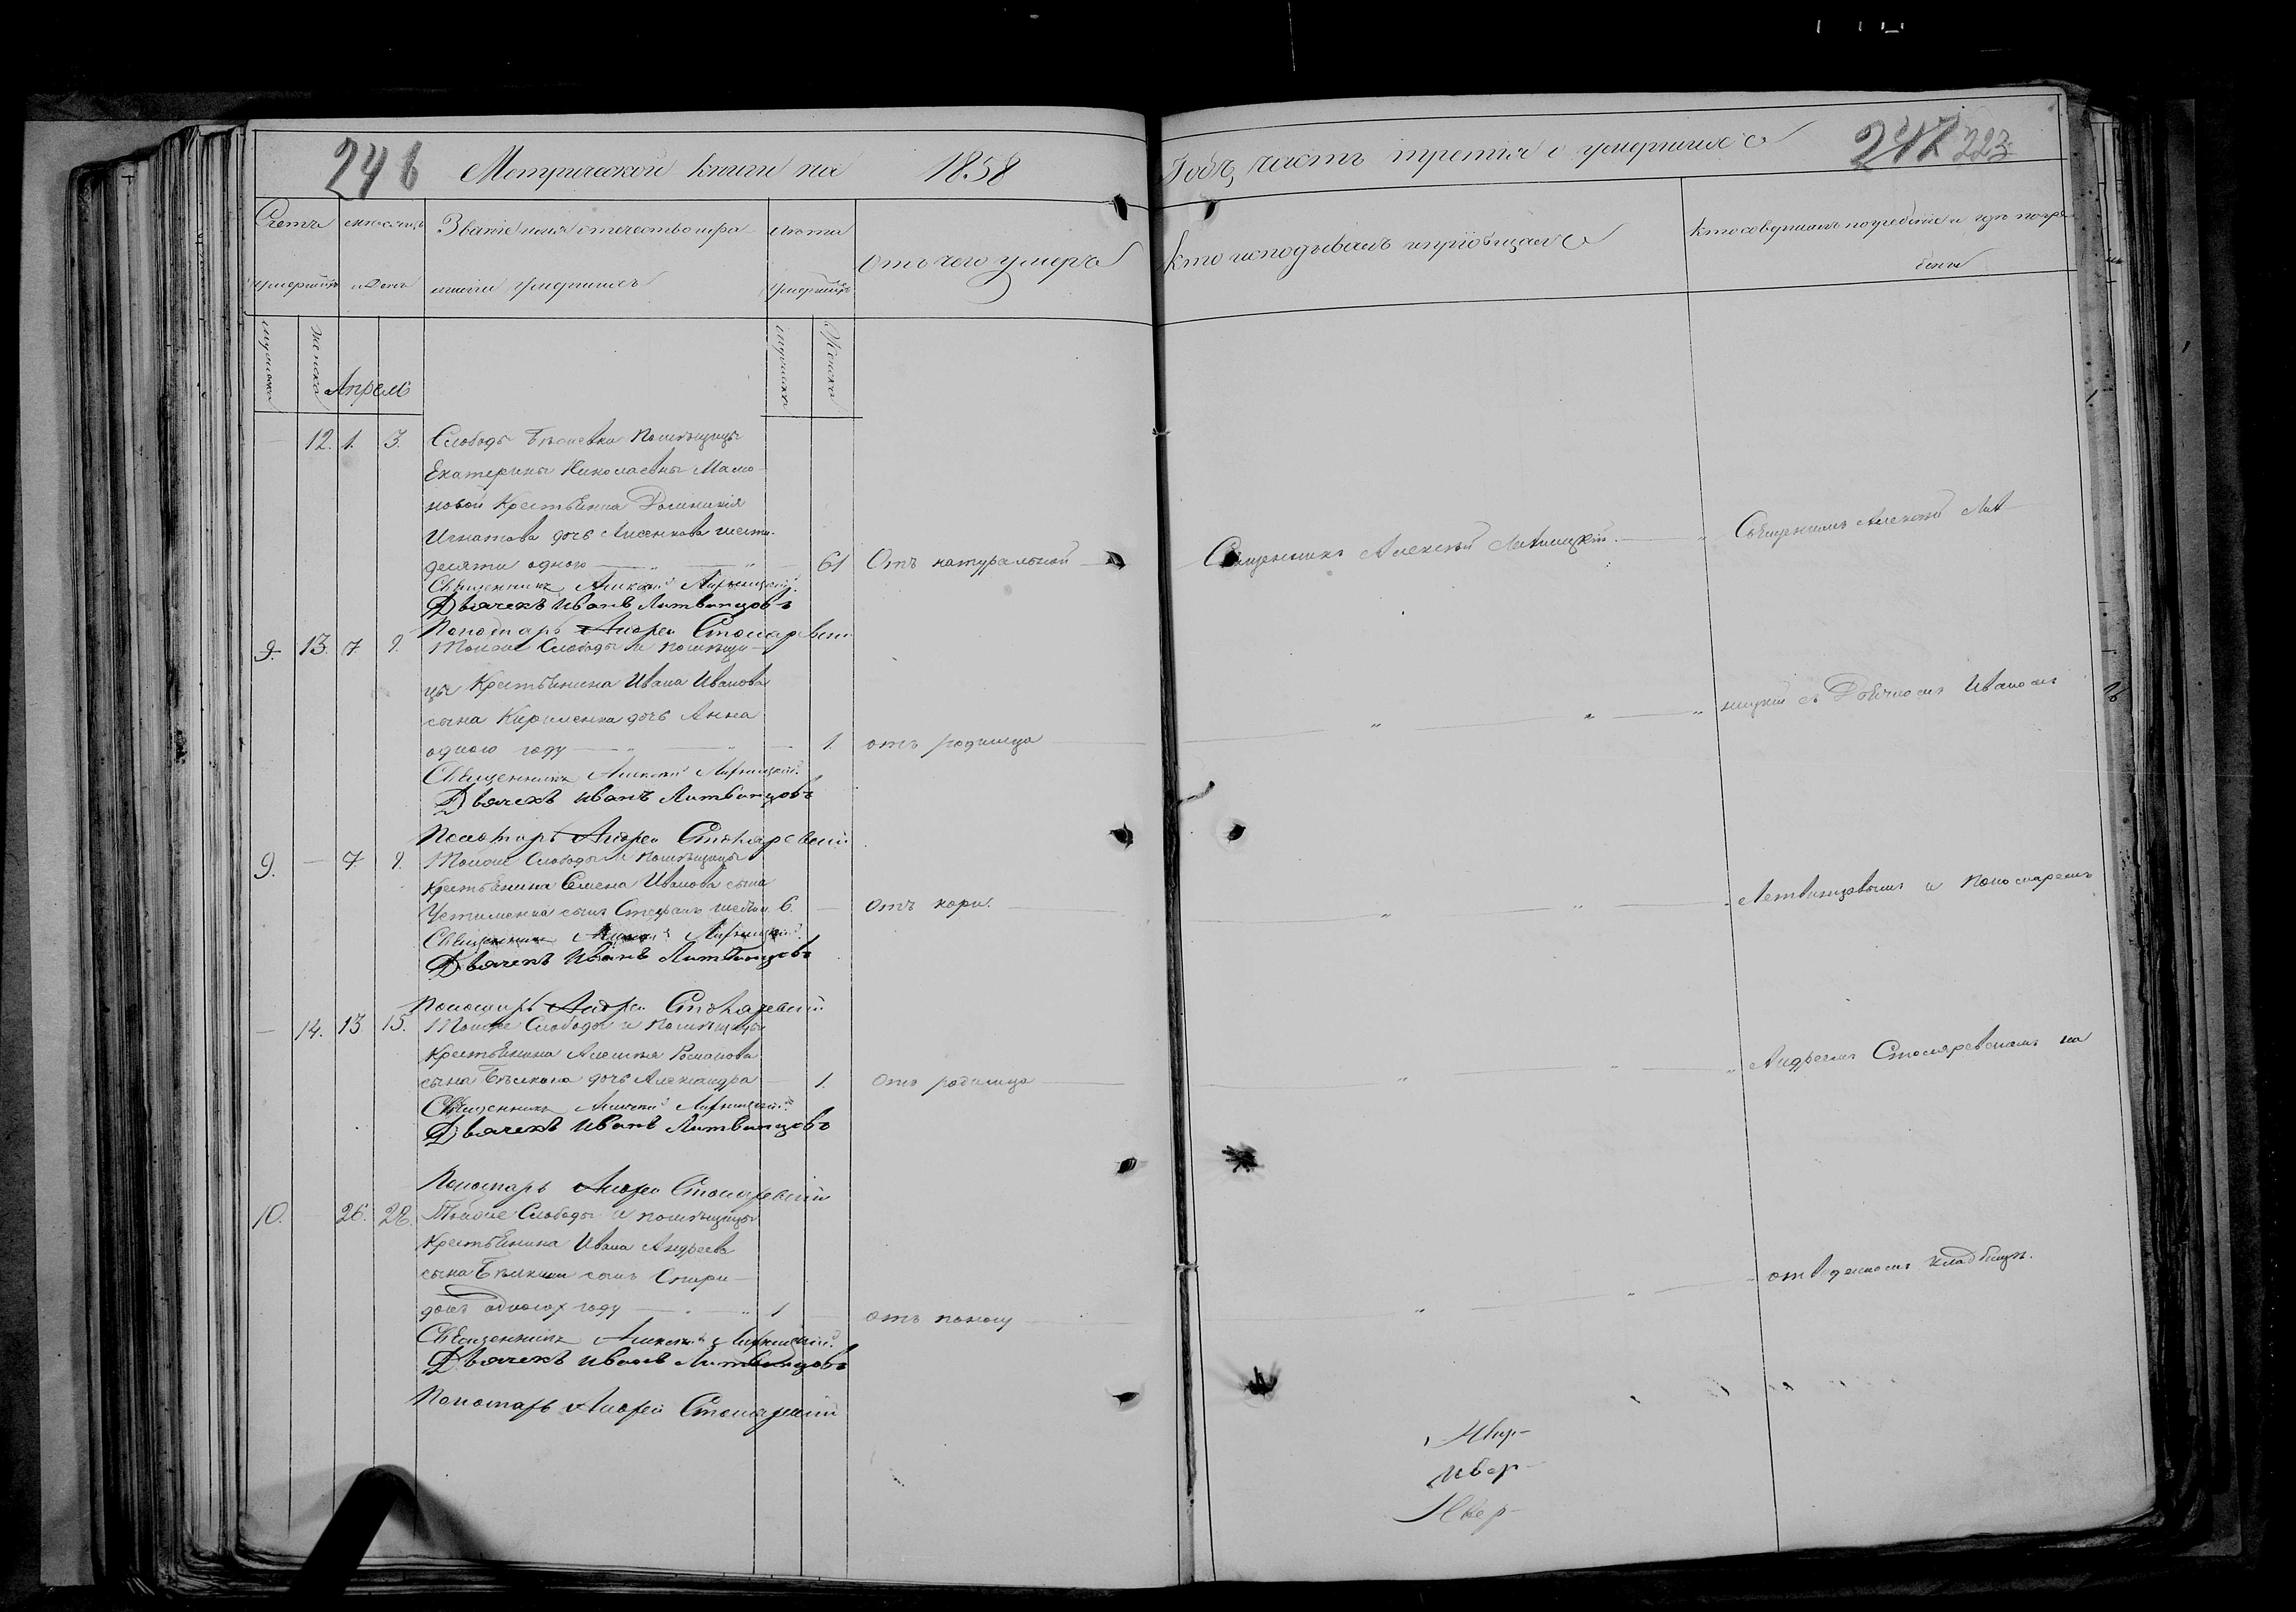 246 Метрической книги на 1858
Годъ, часть третія о умершихъ 247 223
Счетъ умершихъ
мѣсяцъ и День
Званіе имя отечество и фамилія умершихъ
лѣта умершихъ
Отъ чего умеръ
Кто исповѣдывалъ и пріобщалъ
Кто совершалъ погребеніе и гдѣ погребены
мужеска
женска
Апрель
мужеска
Женска
12. 1. 3. Слободы Помѣщицы
Екатерины Николаевны Мамо-
новой Крестьянка
Игнатова дочь Лисенкова шести-
десяти одного 61 Отъ натуральной Священникъ Алексѣй
Священникъ Алексѣй
Дьячекъ Иванъ Литвинцовъ
Пономарь Андрей Столяревскій
9. 13. 7 9. Тойже Слободы и помѣщи-
цы Крестьянина Ивана Иванова
сына Кириленка дочь Анна
одного году 1. отъ родимца
Священникъ Алексѣй
Дьячекъ Иванъ Литвинцовъ
Пономарь Андрей Столяревскій
9. — 7 9. Тойже Слободы и помѣщицы
Крестьянина Семена Иванова сына
Устименка сынъ Стефанъ шести 6. отъ кори.
Священникъ Алексѣй
Дьячекъ Иванъ Литвинцовъ
Пономарь Андрей Столяревскій
— 14. 13 15. Тойже Слободы и помѣщицы
Крестьянина Алексѣя Романова
сына дочь Александра 1. Отъ родимца
Священникъ Алексѣй
Дьячекъ Иванъ Литвинцовъ
Пономарь Андрей Столяревскій
10. 26. 28. Тойже Слободы и помѣщицы
Крестьянина Ивана Андреева
сына сынъ Спири-
донъ одного году 1 отъ поносу
Священникъ Алексѣй
Дьячекъ Иванъ Литвинцовъ
Пономарь Андрей Столяревскій
Священникъ Алексѣй
ницкій съ Дьячкомъ Иваномъ
Летвинцовымъ и Пономаремъ
Андреемъ Столяревскимъ на
отведенномъ кладбищѣ.